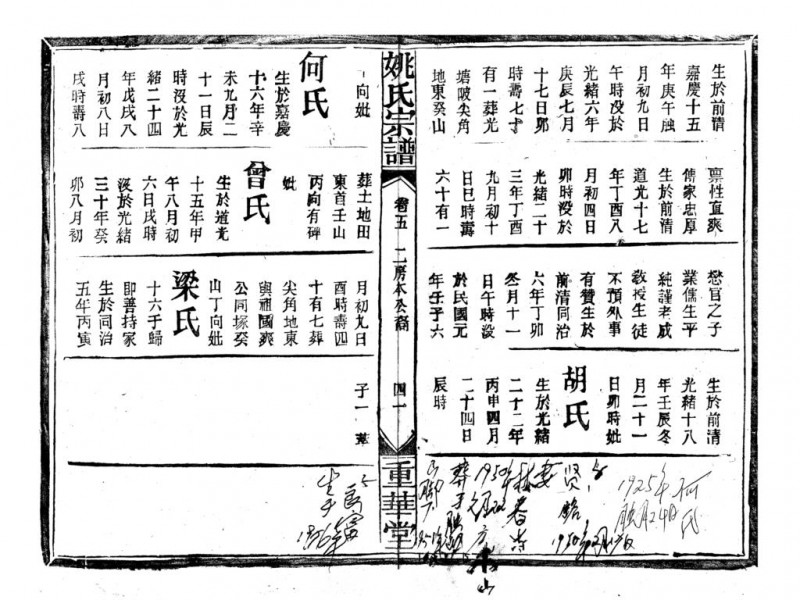 生於前清
嘉慶十五
年庚午臘
月初九日
午時没於
光緒六年
庚辰七月
十七日卯
時壽七十
有一葬光
塘陂尖角
地東癸山
禀性直爽
傳家忠厚
生於前清
道光十七
年丁酉八
月初四日
卯時没於
光緒二十
三年丁酉
九月初十
日巳時壽
六十有一
懋官之子
業儒生平
純謹老成
教授生徒
不預外事
有贊生於
前清同治
六年丁卯
冬月十一
日午時没
於民國元
年壬子六
生於前清
光緒十八
年壬辰冬
月二十一
日卯時妣
胡氏
生於光緒
二十二年
丙申四月
二十四日
辰時
何氏
1925年
姚氏宗譜
卷五
二房本公裔
四一
重華堂
丁向妣
何氏
生於嘉慶
十六年辛
未九月二
十一日辰
時没於光
緒二十四
年戊戌八
月初八日
戌時壽八
葬土地田
東首壬山
丙向有碑
妣
曾氏
生於道光
十五年甲
午八月初
六日戌時
没於光緒
三十年癸
卯八月初
月初九日
酉時壽四
十有七葬
尖角地東
與祖國爽
公同塚癸
山丁向妣
梁氏
十六于歸
即善持家
生於同治
五年丙寅
子一 華